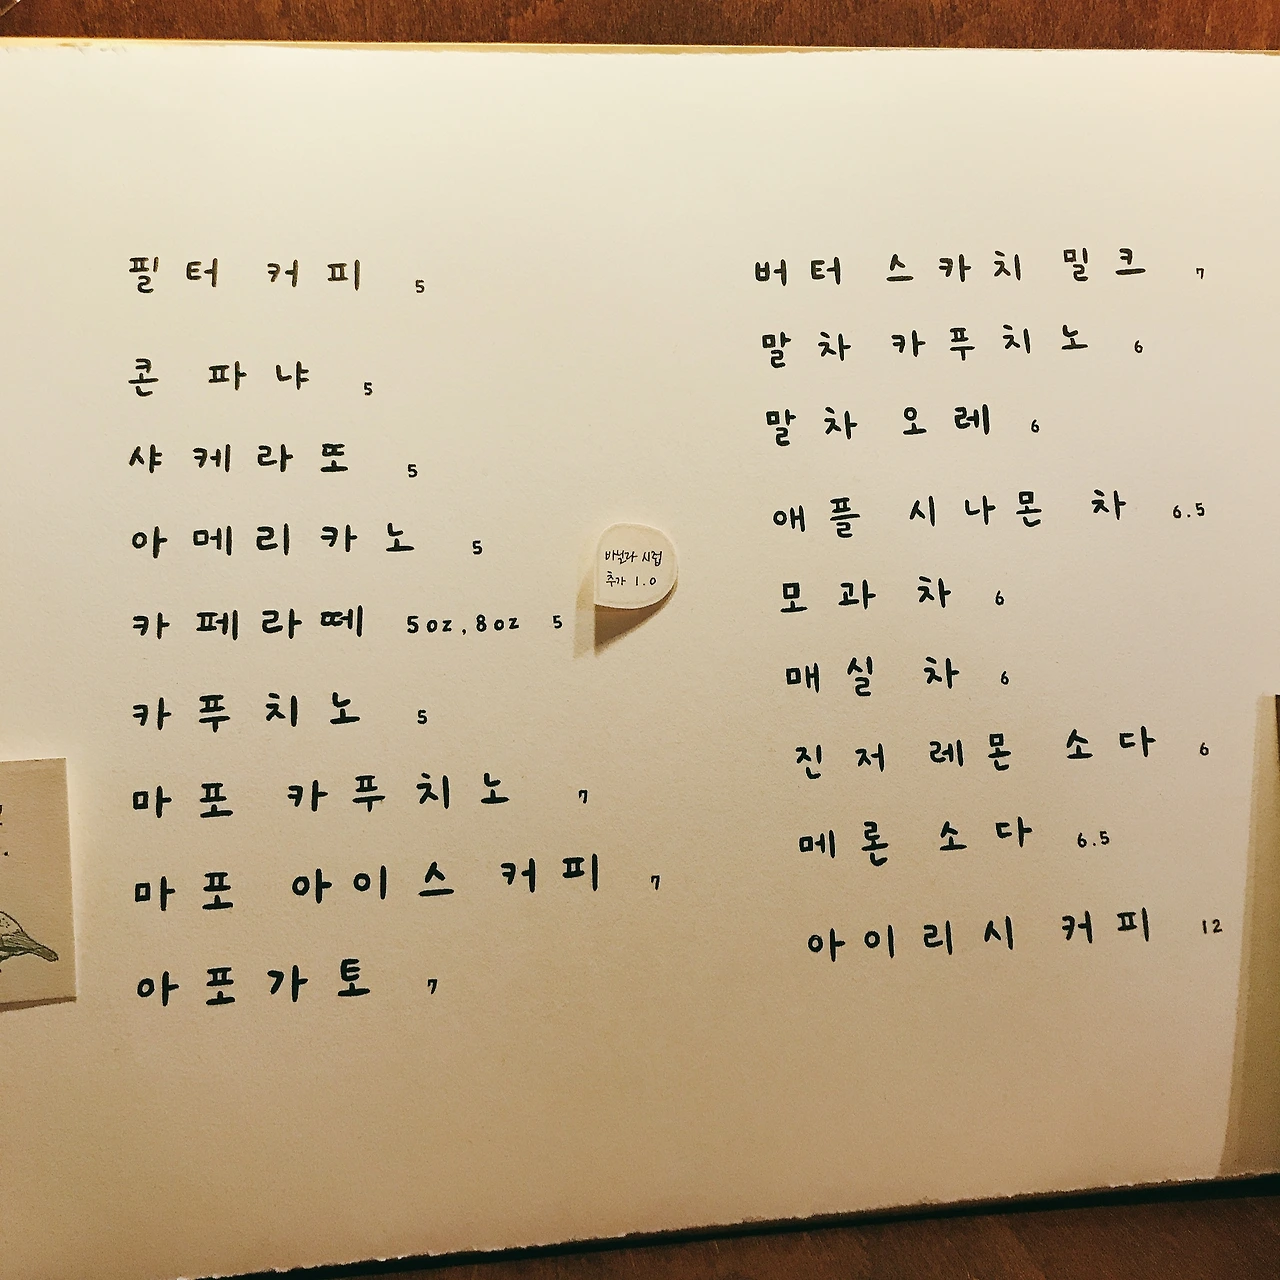 필터 커피 5
콘 파냐 5
샤케라또 5
아메리카노 5
카페라떼 5oz,8oz 5
카푸치노 5
마포 카푸치노 7
마포 아이스 커피 7
아포가토 7
바닐라 시럽
추가 1.0
버터 스카치 밀크 7
말차 카푸치노 6
말차 오레 6
애플 시나몬 차 6.5
모과 차 6
매실 차 6
진저 레몬 소다 6
메론 소다 6.5
아이리시 커피 12